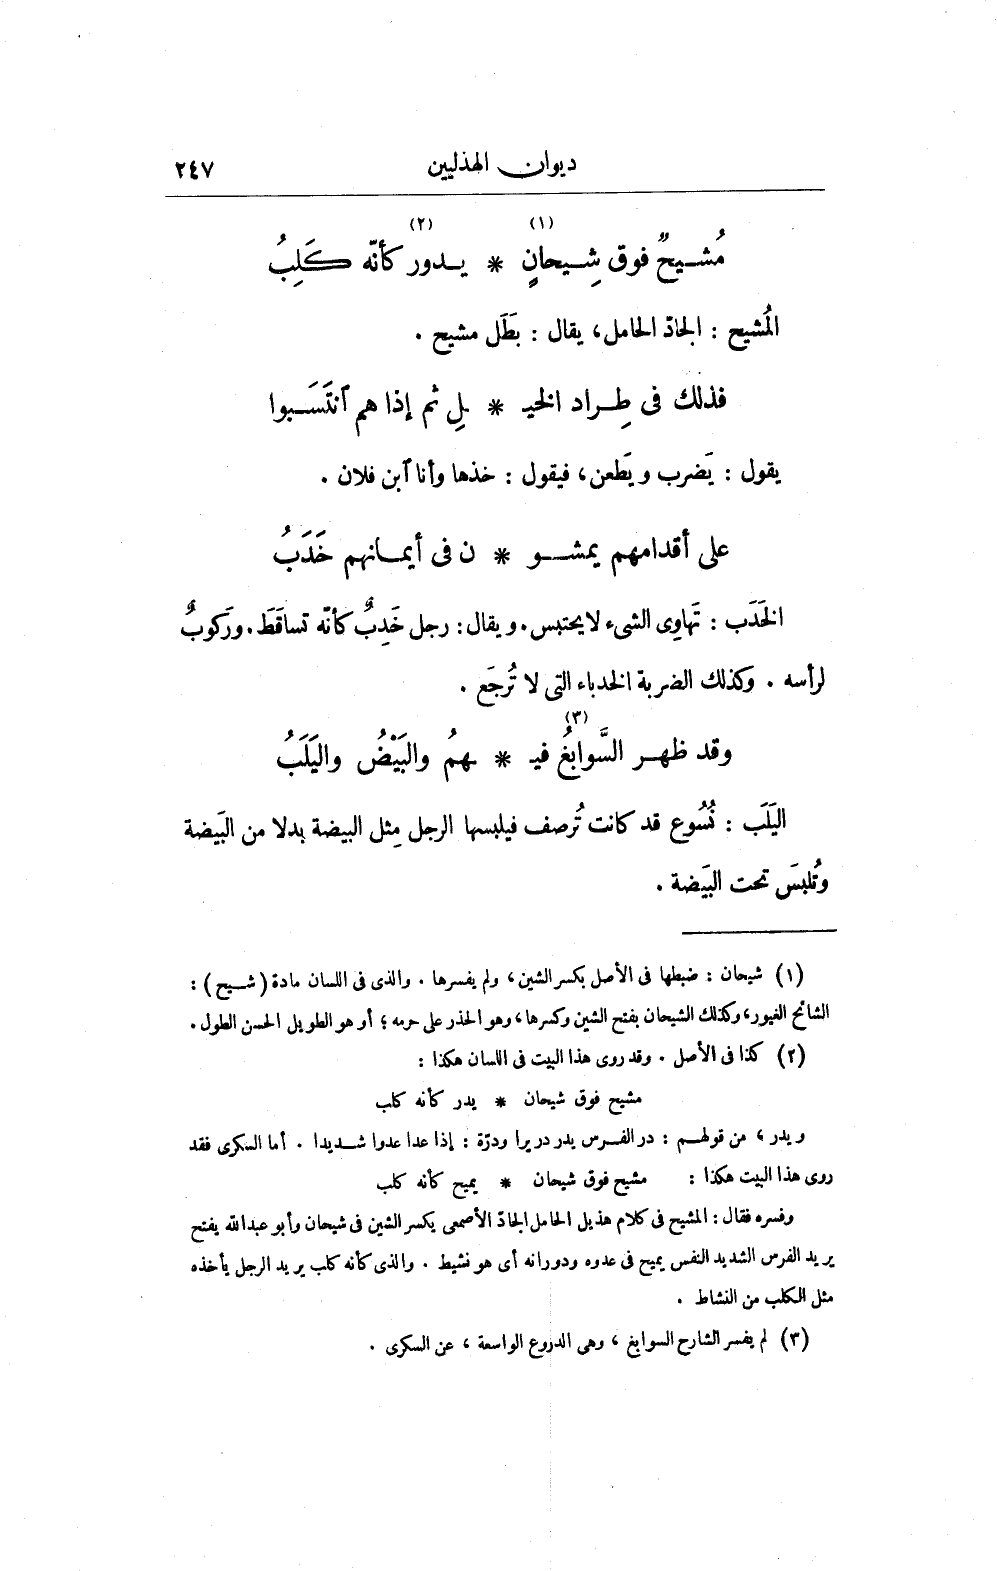 ديوان الهذليين ٢٤٧
(١) (٢)
مُشيحٌ فوق شِيحانٍ * يدور كأنّه كَلِبُ
المُشيح : الجادّ الحامل، يقال : بَطَل مشيح .
فذلك فى طِراد الخيـ * ـلِ ثم إذا هم ٱنتَسَبوا
يقول : يَضرب ويَطعن، فيقول : خذها وأنا ٱبن فلان .
على أقدامهم يمشو * ن فى أيمانهم خَدَبُ
الخَدَب : تَهاوِى الشىء لا يحتبس. ويقال: رجل خَدِبٌ كأنّه تساقَطَ. ورَكوبٌ
لرأسه . وكذلك الضربة الخدباء التى لا تُرجَع .
(٣)
وقد ظهر السَّوابغُ فيـ * ـهمُ والبَيْضُ واليَلَبُ
اليَلَب : نُسُوع قد كانت تُرصف فيلبسها الرجل مِثل البيضة بدلا من البَيضة
وتُلبسَ تحت البَيضة .
(١) شيحان : ضبطها فى الأصل بكسر الشين، ولم يفسرها . والذى فى اللسان مادة (شيح) :
الشائح الغيور، وكذلك الشيحان بفتح الشين وكسرها، وهو الحذر على حرمه ؛ أو هو الطويل الحسن الطول .
(٢) كذا فى الأصل . وقد روى هذا البيت فى اللسان هكذا :
مشيح فوق شيحان * يدر كأنه كلب
ويدر ، من قولهم : در الفرس يدر دريرا ودرّة : إذا عدا عدوا شديدا . أما السكرى فقد
روى هذا البيت هكذا : مشيح فوق شيحان * يميح كأنه كلب
وفسره فقال : المشيح فى كلام هذيل الحامل الجادّ الأصمعى يكسر الشين فى شيحان وأبو عبدالله يفتح
يريد الفرس الشديد النفس يميح فى عدوه ودورانه أى هو نشيط . والذى كأنه كلب يريد الرجل يأخذه
مثل الكلب من النشاط .
(٣) لم يفسر الشارح السوابغ ، وهى الدروع الواسعة ، عن السكرى .